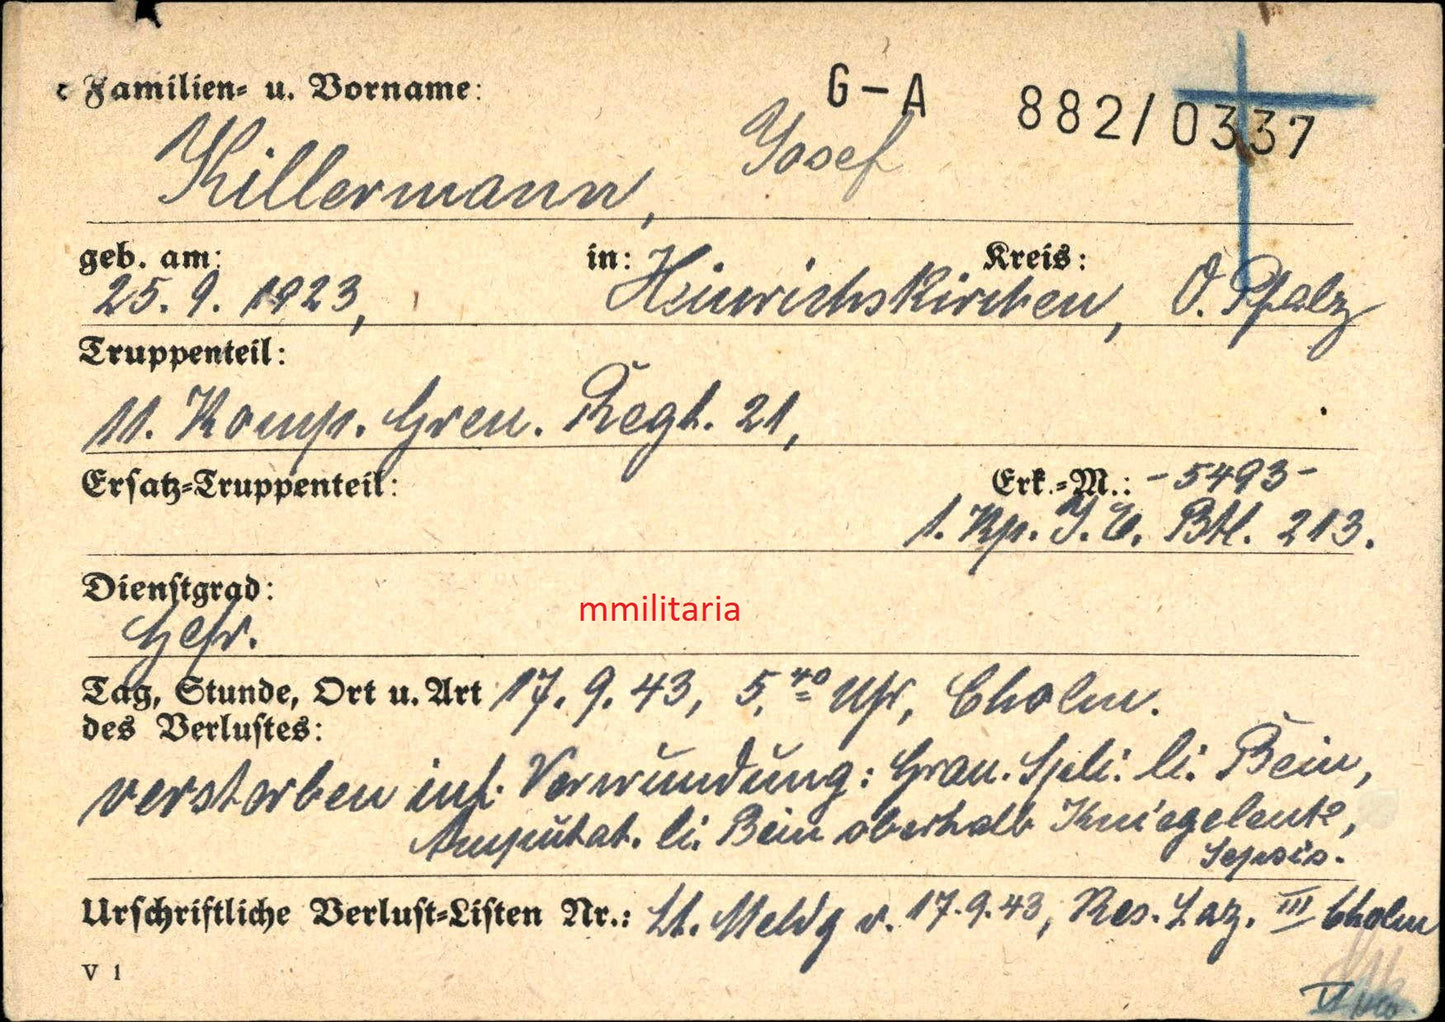 Familien- u. Vorname: G-A 882/0337
Killermann, Josef
geb. am: in: Kreis:
25. 9. 1923, Heinrichskirchen, O. Pfalz
Truppenteil:
11. Komp. Gren. Regt. 21,
Ersatz-Truppenteil: Erk.-M.: -5493-
1. Kp. I. E. Btl. 213.
Dienstgrad:
Gefr.
mmilitaria
Tag, Stunde, Ort u. Art 17. 9. 43, 5.40 Uhr, Cholm.
des Verlustes:
verstorben inf. Verwundung: Gran. Spli. li. Bein,
Amputat. li. Bein oberhalb Kniegelenk,
Sepsis.
Urschriftliche Verlust-Listen Nr.: Lt. Meldg v. 17.9.43, Res. Laz. III Cholm
V 1
VI